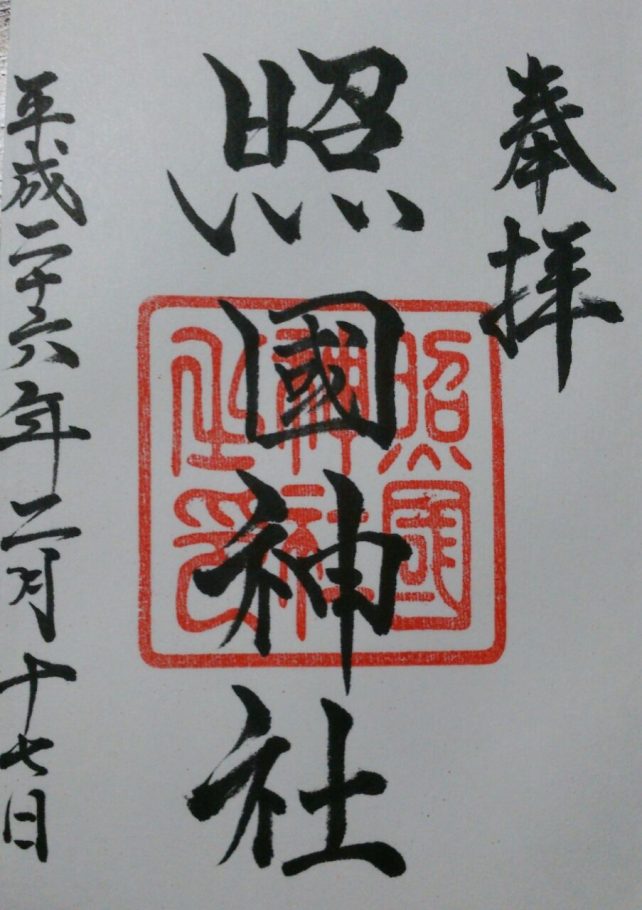 奉拝
照國神社
照國
神社
之印
平成二十六年二月十七日